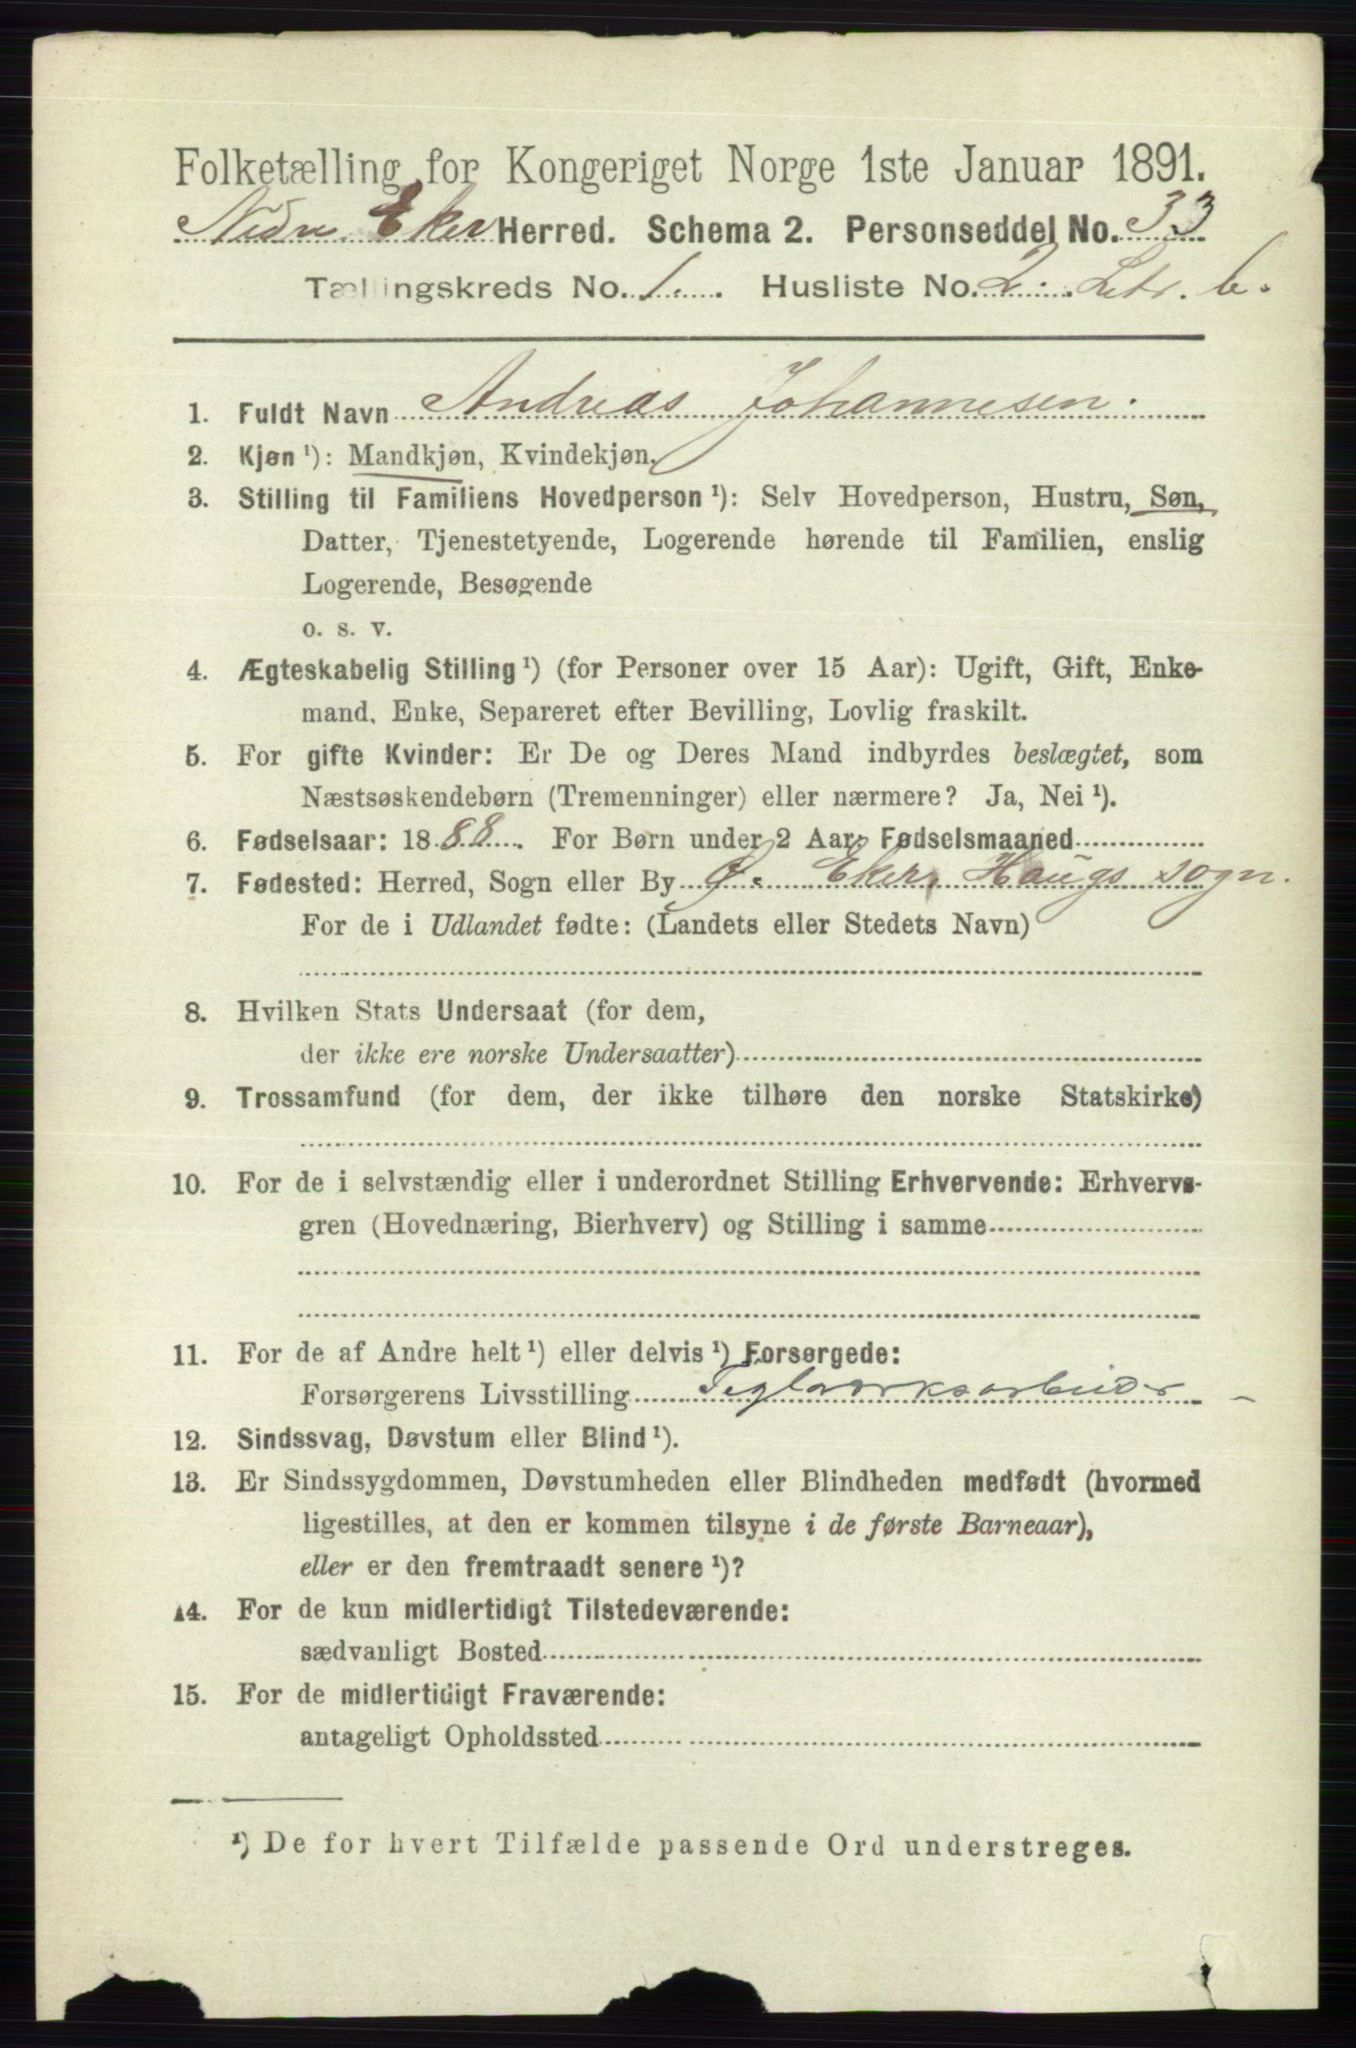 Folketælling for Kongeriget Norge 1ste Januar 1891.
Nedre Eker Herred. Schema 2. Personseddel No. 33
Tællingskreds No. 1. Husliste No. 2. Litr. b.
1. Fuldt Navn Andreas Johannesen.
2. Kjøn ¹): Mandkjøn, Kvindekjøn.
3. Stilling til Familiens Hovedperson ¹): Selv Hovedperson, Hustru, Søn,
Datter, Tjenestetyende, Logerende hørende til Familien, enslig
Logerende, Besøgende
o. s. v.
4. Ægteskabelig Stilling ¹) (for Personer over 15 Aar): Ugift, Gift, Enke-
mand, Enke, Separeret efter Bevilling, Lovlig fraskilt.
5. For gifte Kvinder: Er De og Deres Mand indbyrdes beslægtet, som
Næstsøskendebørn (Tremenninger) eller nærmere? Ja, Nei ¹).
6. Fødselsaar: 1888. For Børn under 2 Aar: Fødselsmaaned
7. Fødested: Herred, Sogn eller By Ø. Eker, Haugs sogn.
For de i Udlandet fødte: (Landets eller Stedets Navn)
8. Hvilken Stats Undersaat (for dem,
der ikke ere norske Undersaatter)
9. Trossamfund (for dem, der ikke tilhøre den norske Statskirke)
10. For de i selvstændig eller i underordnet Stilling Erhvervende: Erhvervs-
gren (Hovednæring, Bierhverv) og Stilling i samme
11. For de af Andre helt ¹) eller delvis ¹) Forsørgede:
Forsørgerens Livsstilling Teglværksarbeider -
12. Sindssvag, Døvstum eller Blind ¹).
13. Er Sindssygdommen, Døvstumheden eller Blindheden medfødt (hvormed
ligestilles, at den er kommen tilsyne i de første Barneaar),
eller er den fremtraadt senere ¹)?
14. For de kun midlertidigt Tilstedeværende:
sædvanligt Bosted
15. For de midlertidigt Fraværende:
antageligt Opholdssted
¹) De for hvert Tilfælde passende Ord understreges.